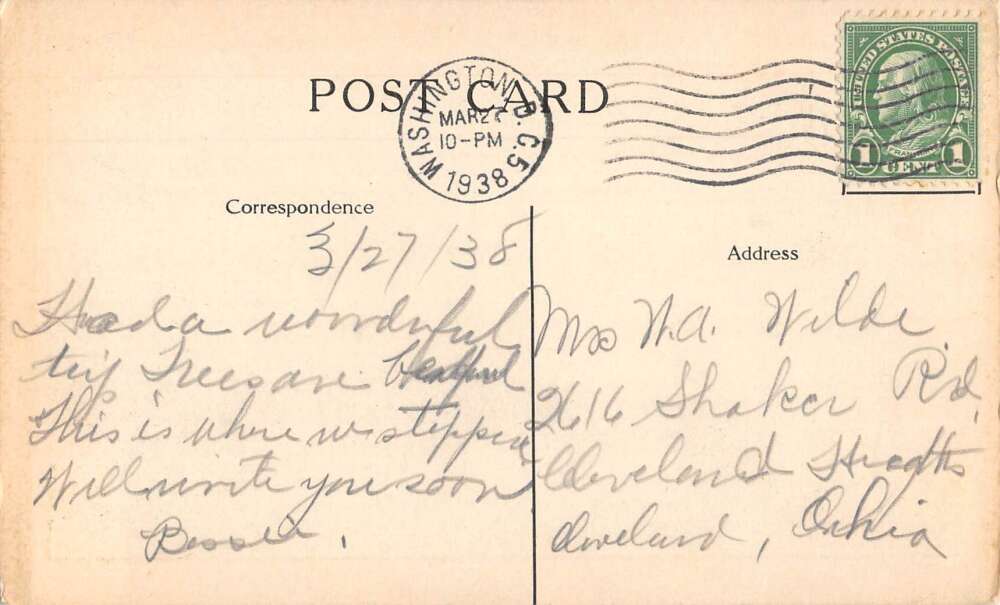 POST CARD
WASHINGTON, D.C. 5
MAR 27
10-PM
1938
UNITED STATES POSTAGE
FRANKLIN
1 CENT 1
Correspondence
3/27/38
Had a wonderful
trip Trees are beautiful
This is where we stopped
Will write you soon
Bessie.
Address
Mrs W.A. Wilde
2616 Shaker Rd,
Cleveland Heights
Cleveland, Ohio